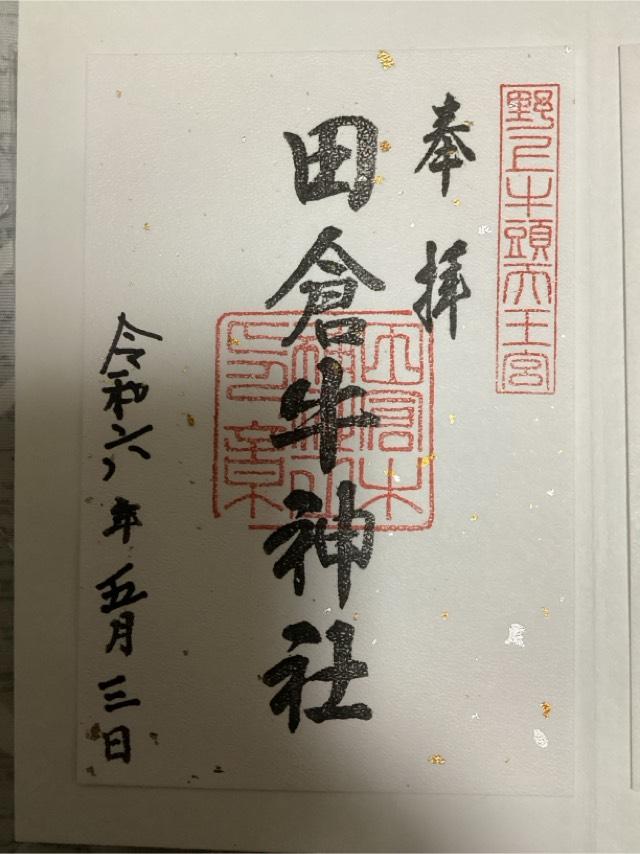 野上牛頭天王宮
奉拝
田倉牛神社
令和六年五月三日